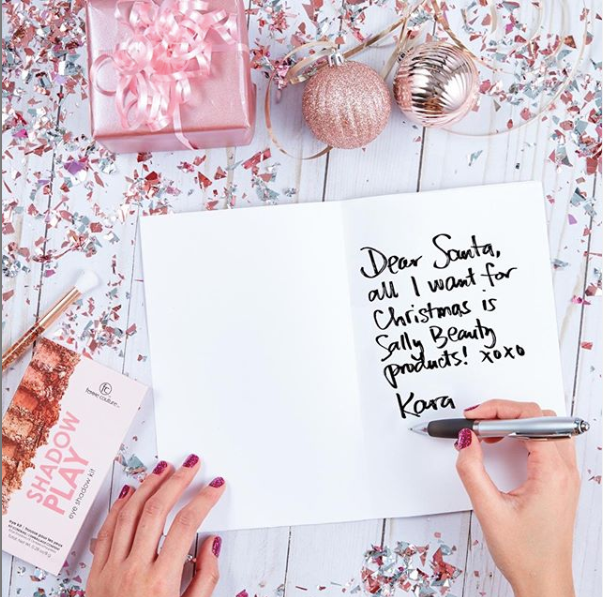 Dear Santa,
all I want for
Christmas is
Sally Beauty
products! xoxo
Kara
fc
SHADOW
PLAY
eye shadow kit